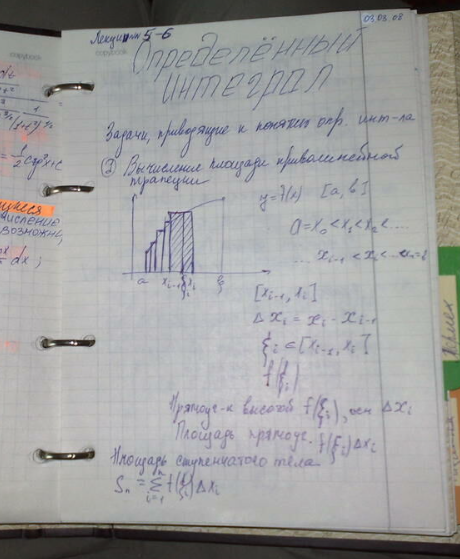 03.03.08
Лекции 5-6
Определённый
интеграл
Задачи, приводящие к понятию опр. инт-ла
Вычисление площади криволинейной
трапеции
y=f(x) [a, b]
a=x₀<x₁<x₂<....
... xᵢ₋₁ <xᵢ <...
a xᵢ₋₁ ξᵢ xᵢ b
[xᵢ₋₁, xᵢ]
Δxᵢ = xᵢ - xᵢ₋₁
ξᵢ ⊂ [xᵢ₋₁, xᵢ]
f(ξᵢ)
Прямоуг-к высотой f(ξᵢ), осн Δxᵢ
Площадь прямоуг. f(ξᵢ)Δxᵢ
Площадь ступенчатого тела
Sₙ = Σⁿᵢ₌₁ f(ξᵢ)Δxᵢ